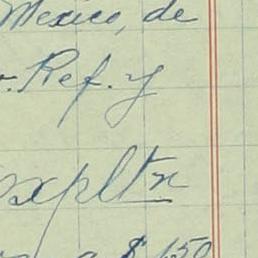 Mexico, de
. Ref. y
xpltn
a $ 150